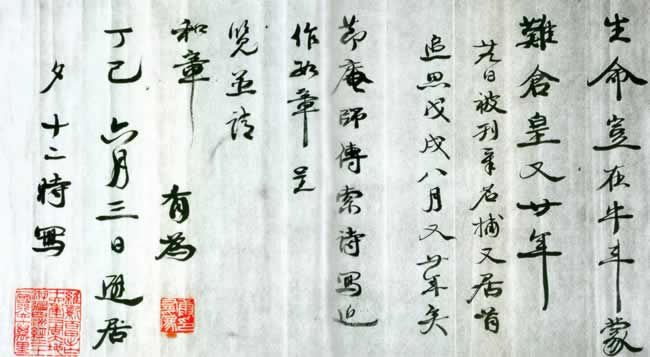 生命豈在牛斗蒙
難倉皇又廿年
日被刊章名捕又居首
追思戊戌八月又廿年矣
節庵師傅索詩寫近
作數章呈
覽並請
和章 有為
丁巳 六月三日遯居
夕十二時寫